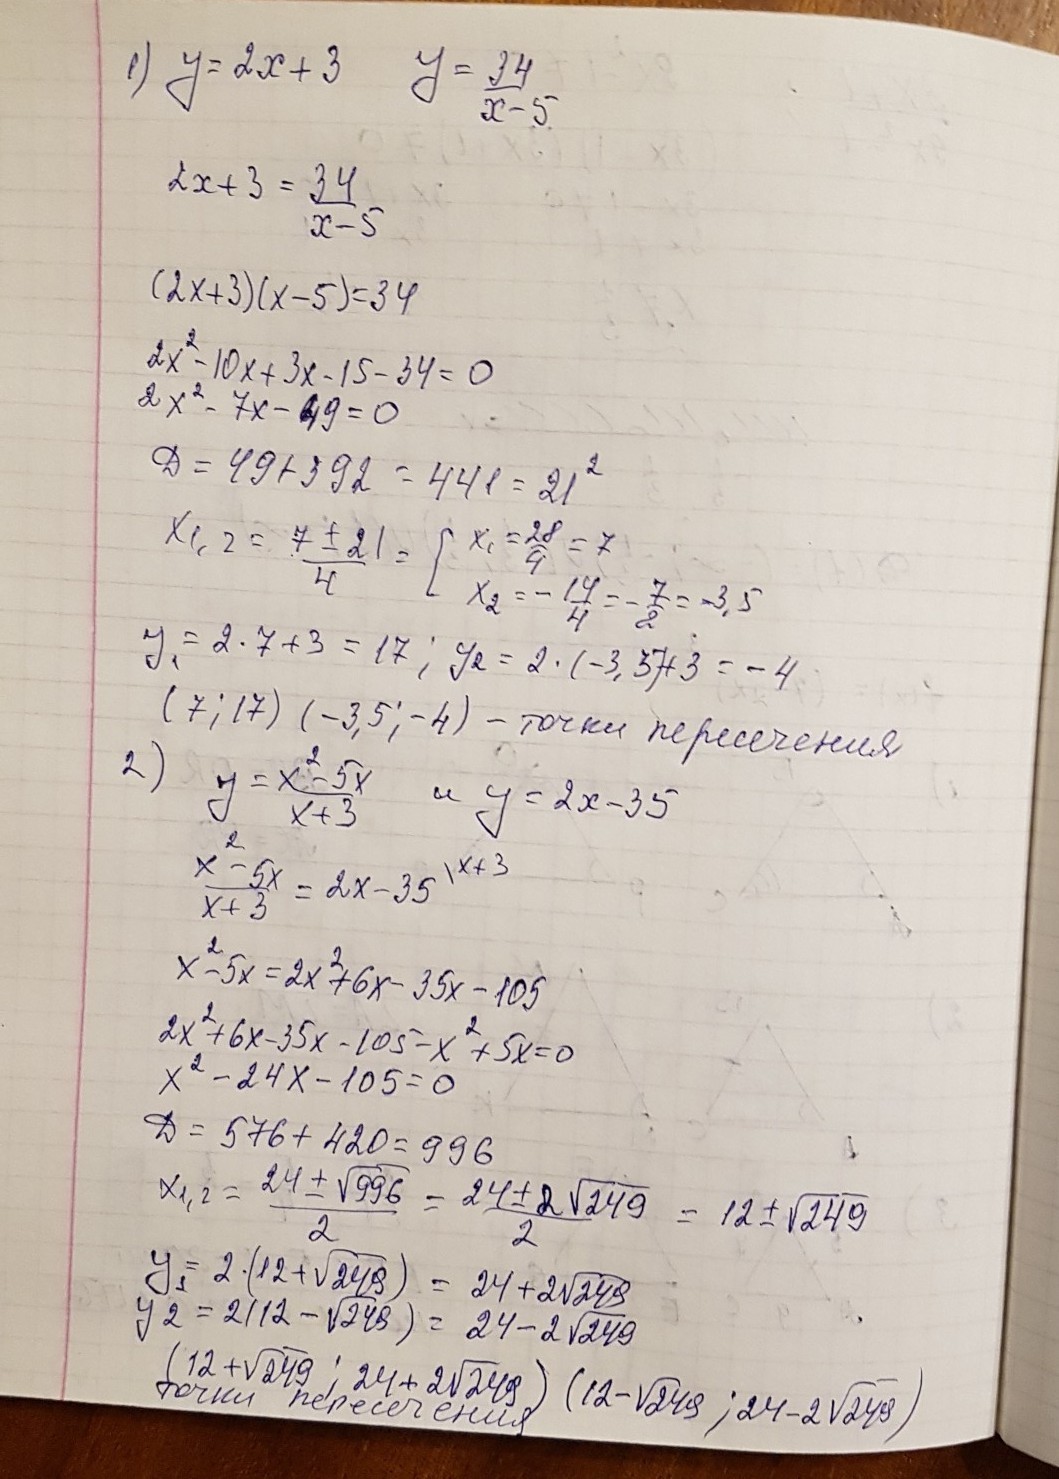 1) y = 2x + 3    y = 34/(x-5)
2x + 3 = 34/(x-5)
(2x+3)(x-5)=34
2x²-10x+3x-15-34=0
2x²-7x-49=0
D = 49+392 = 441 = 21²
x₁,₂ = (7±21)/4 = { x₁ = 28/4 = 7
x₂ = -14/4 = -7/2 = -3,5
y₁ = 2·7+3 = 17; y₂ = 2·(-3,5)+3 = -4
(7;17) (-3,5;-4) - точки пересечения
2) y = (x²-5x)/(x+3) и y = 2x-35
(x²-5x)/(x+3) = 2x-35 \x+3
x²-5x = 2x²+6x-35x-105
2x²+6x-35x-105-x²+5x=0
x²-24x-105=0
D = 576+420=996
x₁,₂ = (24±√996)/2 = (24±2√249)/2 = 12±√249
y₁ = 2·(12+√249) = 24+2√249
y2 = 2(12-√249) = 24-2√249
(12+√249; 24+2√249) (12-√249; 24-2√249)
точки пересечения